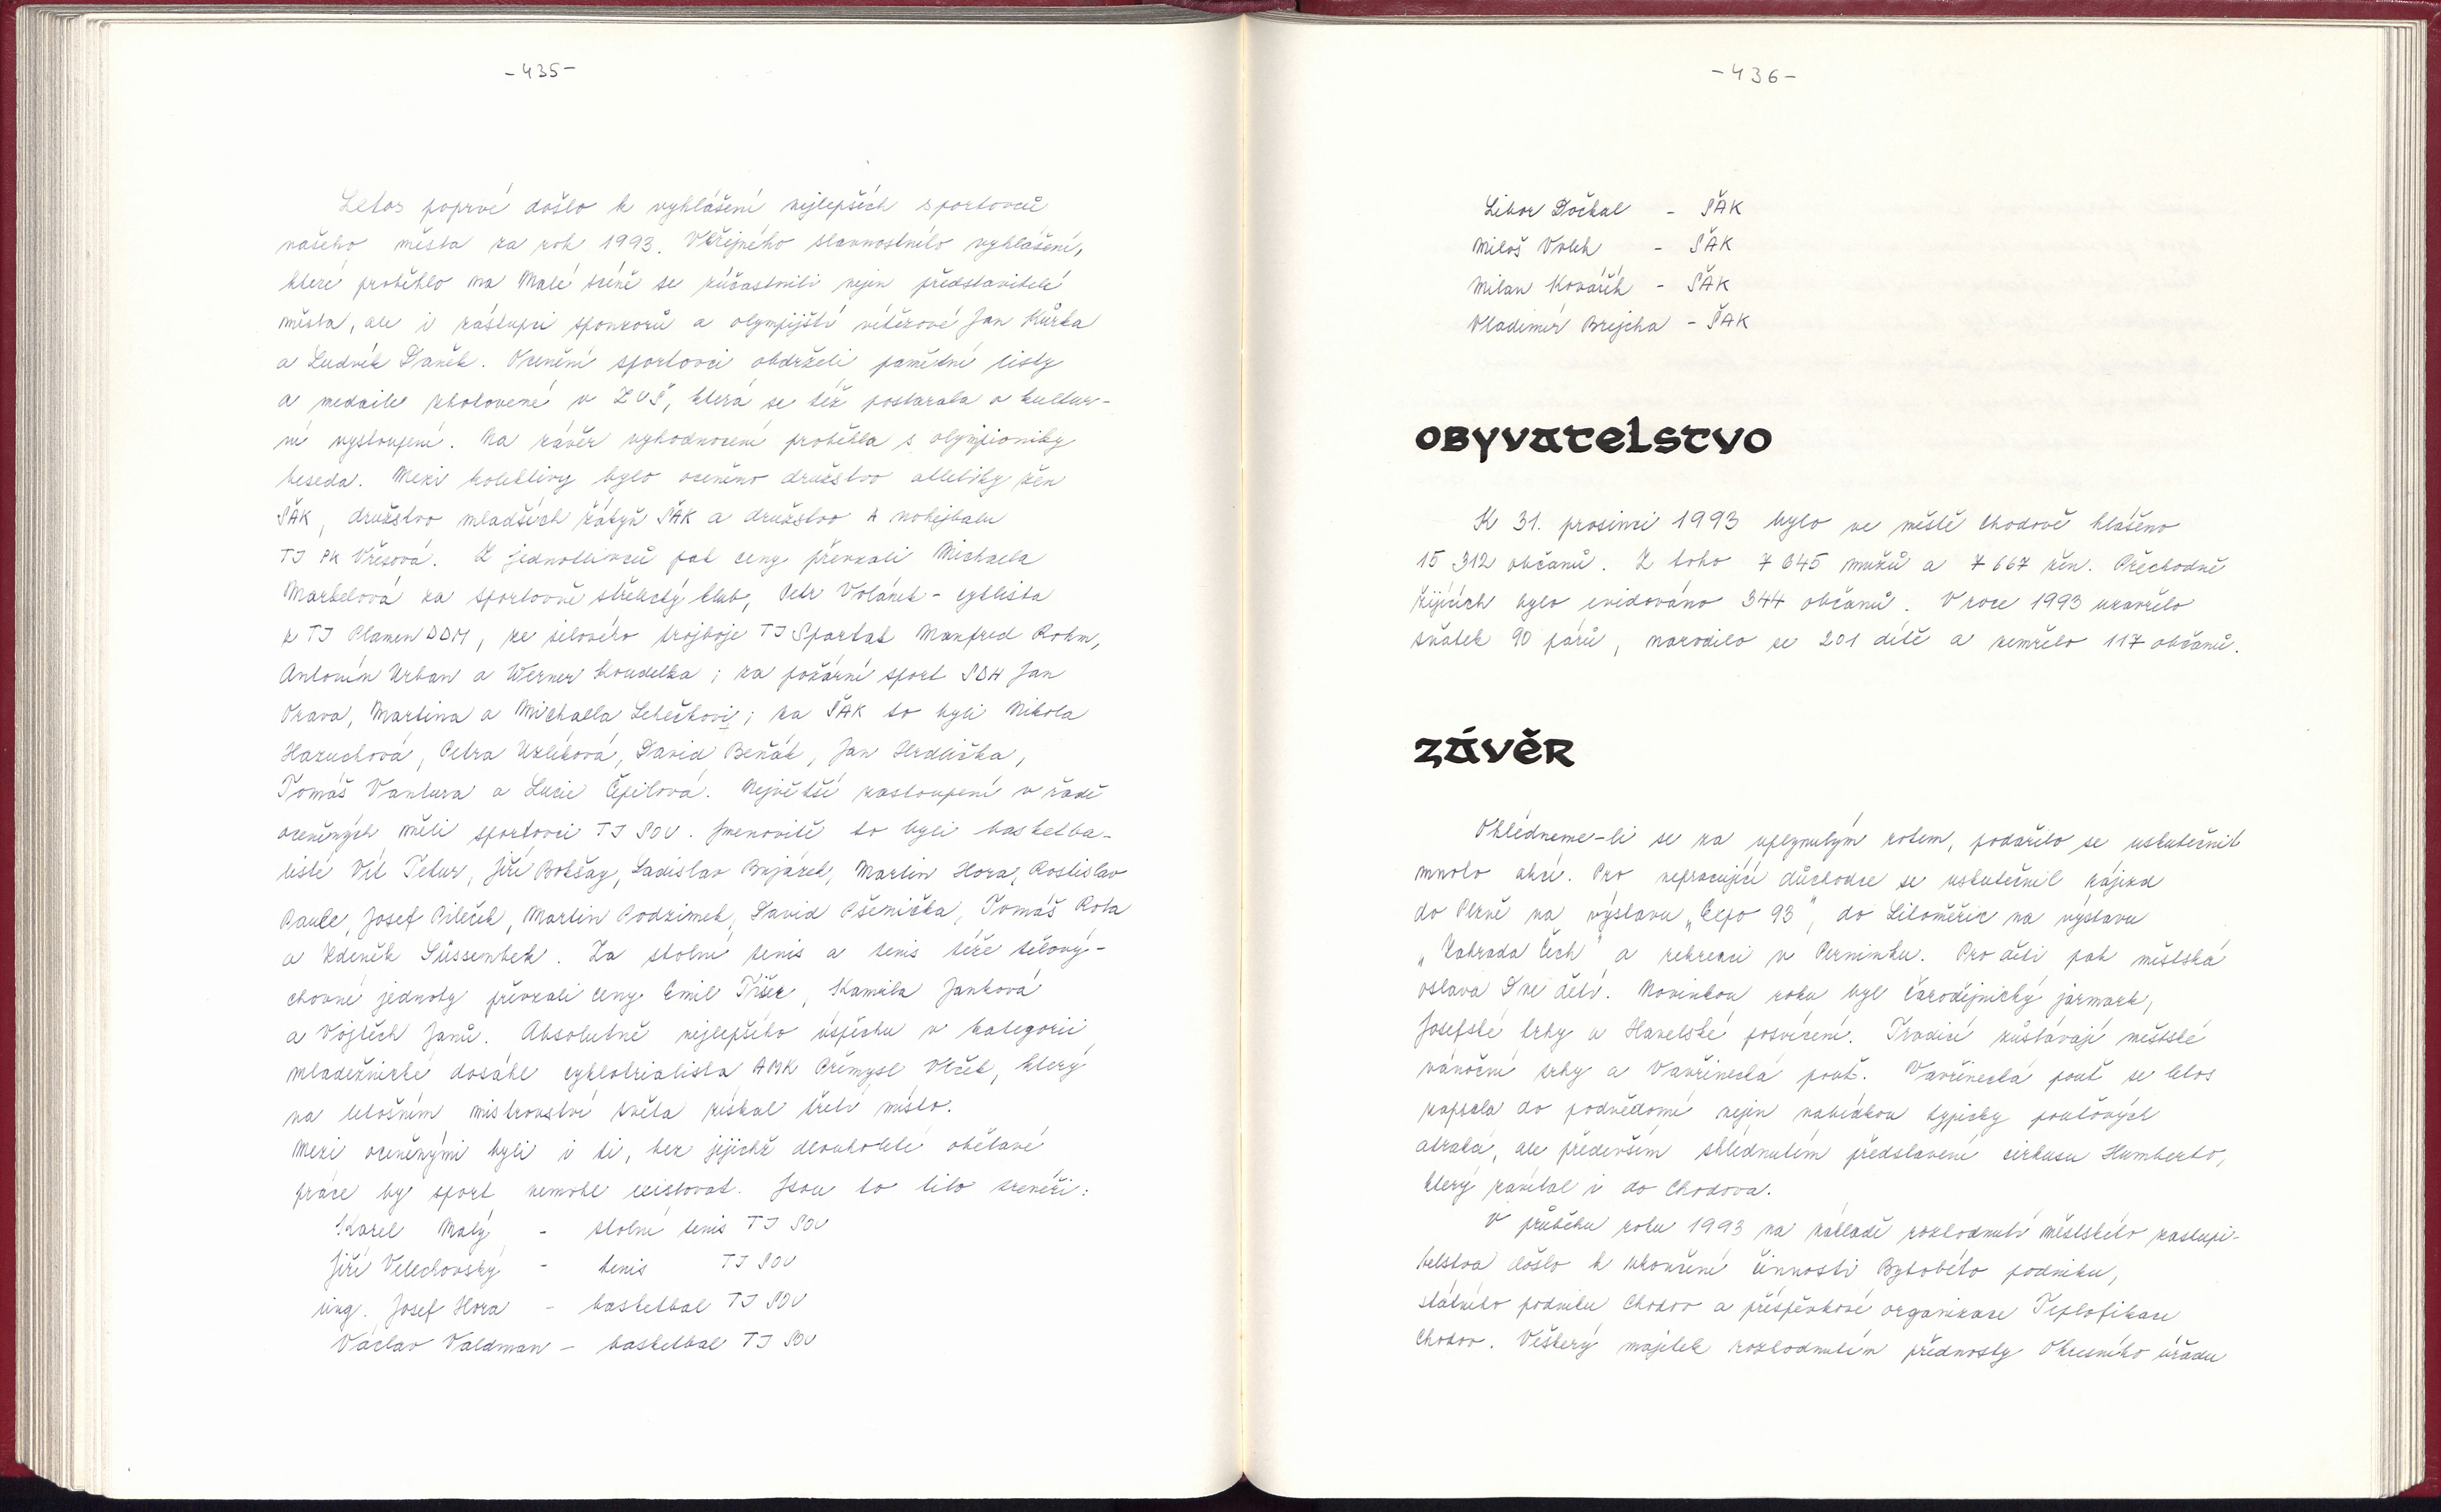 -435-
Letos poprvé došlo k vyhlášení nejlepších sportovců
našeho města za rok 1993. Veřejného slavnostního vyhlášení,
které proběhlo na Malé scéně se zúčastnili nejen představitelé
města, ale i zástupci sponzorů a olympijští vítězové Jan Kůrka
a Ludvík Daněk. Ocenění sportovci obdrželi pamětní listy
a medaile zhotovené v ZUŠ, která se též postarala o kultur-
ní vystoupení. Na závěr vyhodnocení proběhla s olympioniky
beseda. Mezi kolektivy bylo oceněno družstvo atletiky žen
ŠAK, družstvo mladších žákyň ŠAK a družstvo A nohejbalu
TJ PK Vřesová. Z jednotlivců pak ceny převzali Michaela
Markelová za sportovně střelecký klub, Petr Volánek - cyklista
z TJ Plamen DDM, ze silového trojboje TJ Spartak Manfred Rohm,
Antonín Urban a Werner Koudelka; za požární sport SDH Jan
Vrava, Martina a Michaela Lehečkovi; za ŠAK to byli Nikola
Hazuchová, Petra Uzlíková, David Beňák, Jan Hrdlička,
Tomáš Vantura a Lucie Čepilová. Největší zastoupení v řadě
oceněných měli sportovci TJ SOU. Jmenovitě to byli basketba-
listé Vít Tetur, Jiří Bokšay, Ladislav Bujárek, Martin Hora, Rostislav
Paule, Josef Pileček, Martin Podzimek, David Pšenička, Tomáš Rota
a Zdeněk Süssenbek. Za stolní tenis a tenis téže tělový-
chovné jednoty převzali ceny Emil Tišer, Kamila Janková
a Vojtěch Janů. Absolutně nejlepšího úspěchu v kategorii
mládežnické dosáhl cyklotrialista AMK Přemysl Vlček, který
na letošním mistrovství světa získal třetí místo.
Mezi oceněnými byli i ti, bez jejichž dlouholeté obětavé
práce by sport nemohl existovat. Jsou to tito trenéři:
Karel Malý - stolní tenis TJ SOU
Jiří Velechovský - tenis TJ SOU
ing. Josef Hora - basketbal TJ SOU
Václav Valdman - basketbal TJ SOU
-436-
Libor Dočkal - ŠAK
Miloš Volek - ŠAK
Milan Kovářík - ŠAK
Vladimír Brejcha - ŠAK
OBYVATELSTVO
K 31. prosinci 1993 bylo ve městě Chodově hlášeno
15 312 občanů. Z toho 7 645 mužů a 7 667 žen. Přechodně
žijících bylo evidováno 344 občanů. V roce 1993 uzavřelo
sňatek 90 párů, narodilo se 201 dítě a zemřelo 117 občanů.
ZÁVĚR
Ohlédneme-li se za uplynulým rokem, podařilo se uskutečnit
mnoho akcí. Pro nepracující důchodce se uskutečnil zájezd
do Plzně na výstavu „Expo 93", do Litoměřic na výstavu
„Zahrada Čech" a rekreaci v Perninku. Pro děti pak městská
oslava Dne dětí. Novinkou roku byl čarodějnický jarmark,
Josefské trhy a Havelské posvícení. Tradicí zůstávají městské
vánoční trhy a Vavřinecká pouť. Vavřinecká pouť se letos
zapsala do podvědomí nejen nabídkou typicky pouťových
atrakcí, ale především shlédnutím představení cirkusu Humberto,
který zavítal i do Chodova.
V průběhu roku 1993 na základě rozhodnutí městského zastupi-
telstva došlo k ukončení činnosti Bytového podniku,
státního podniku Chodov a příspěvkové organizace Teplofikace
Chodov. Veškerý majetek rozhodnutím přednosty Okresního úřadu